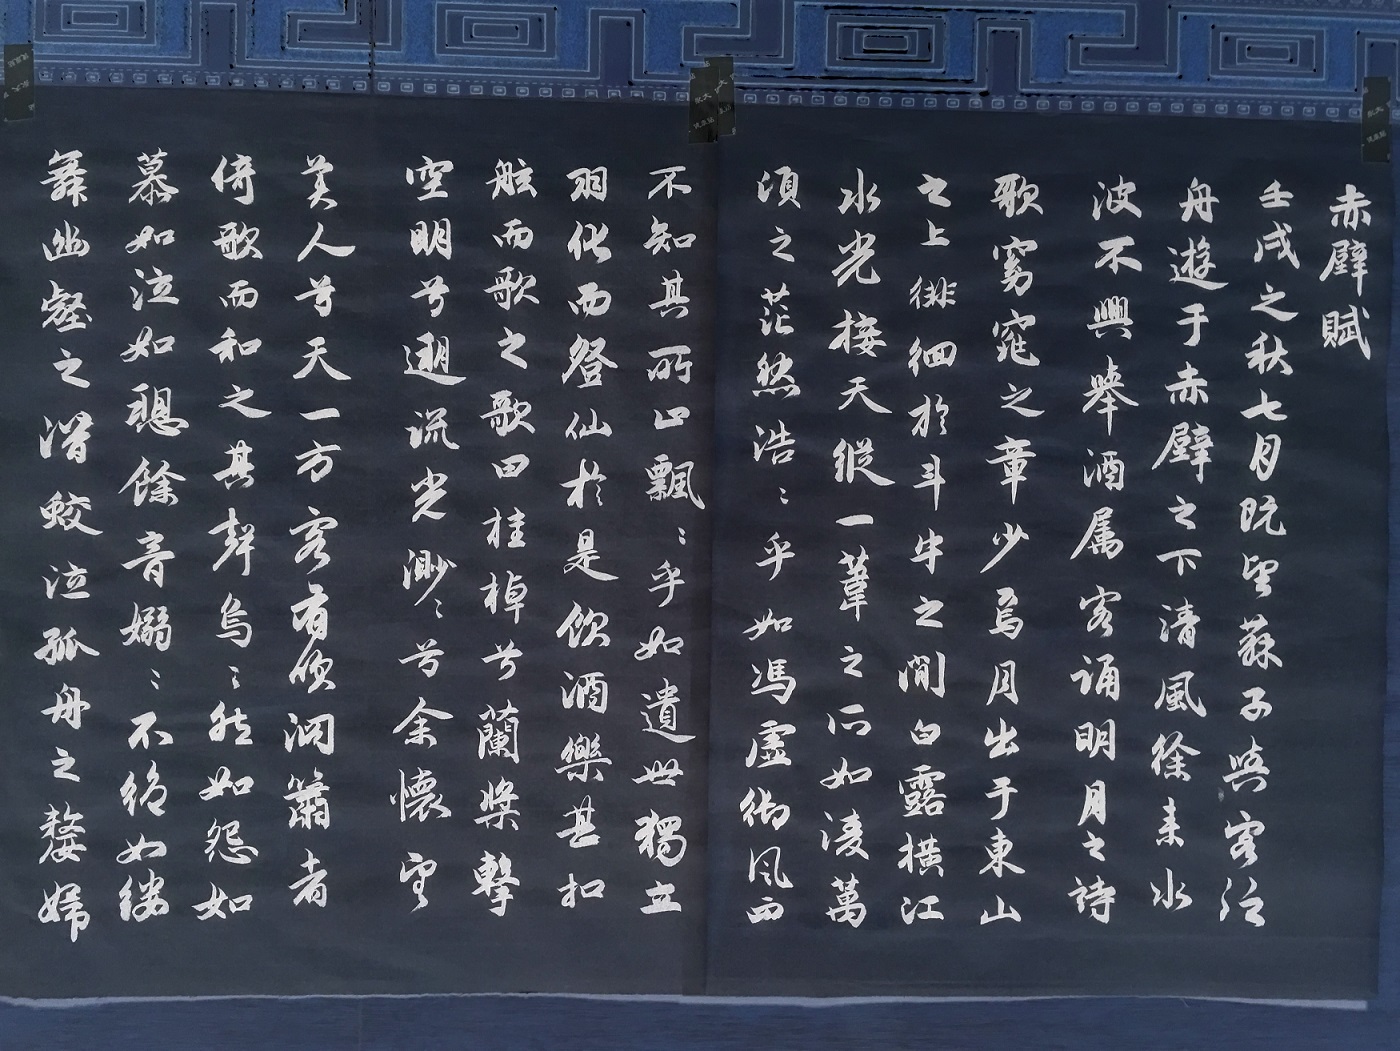 赤壁賦
壬戌之秋七月既望蘇子與客泛
舟遊于赤壁之下清風徐来水
波不興舉酒属客诵明月之詩
歌窈窕之章少焉月出于東山
之上徘徊於斗牛之間白露横江
水光接天縱一葦之所如凌萬
頃之茫然浩〻乎如馮虚御风而
不知其所止飄〻乎如遺世獨立
羽化而登仙於是飲酒樂甚扣
舷而歌之歌曰桂棹兮蘭槳擊
空明兮遡流光渺〻兮余懷望
美人兮天一方客有吹洞簫者
倚歌而和之其聲烏〻然如怨如
慕如泣如訴餘音嫋〻不絕如缕
舞幽壑之潛蛟泣孤舟之嫠婦